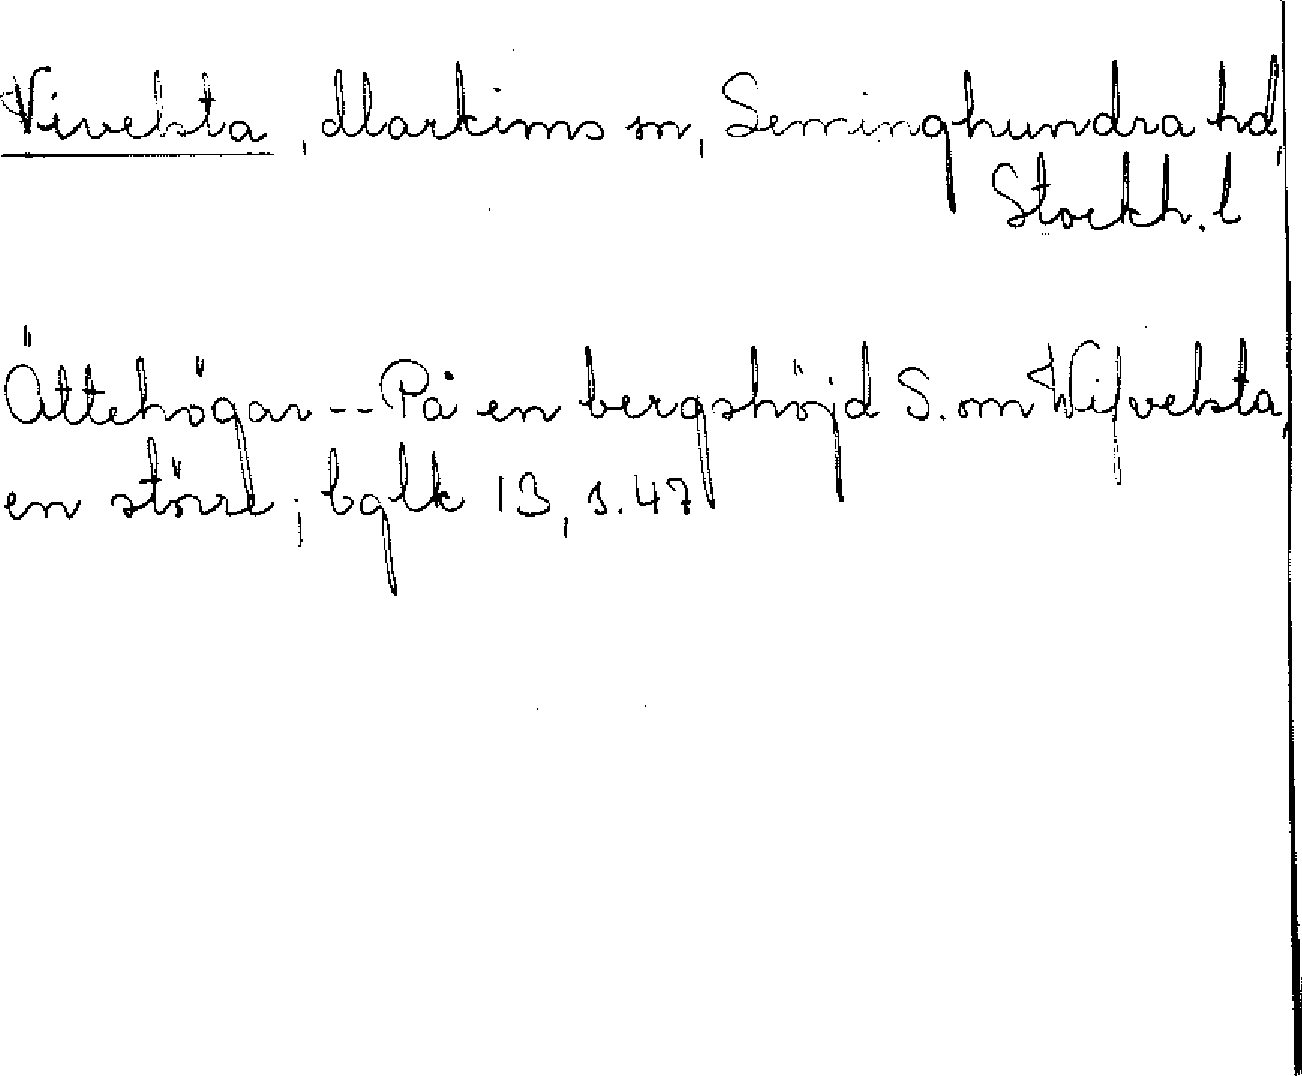 Vivelsta, Markims sn, Seminghundra hd,
Stockh. l
Ättehögar -- På en bergshöjd S. om Wifvelsta,
en större; bglk 13, s. 47